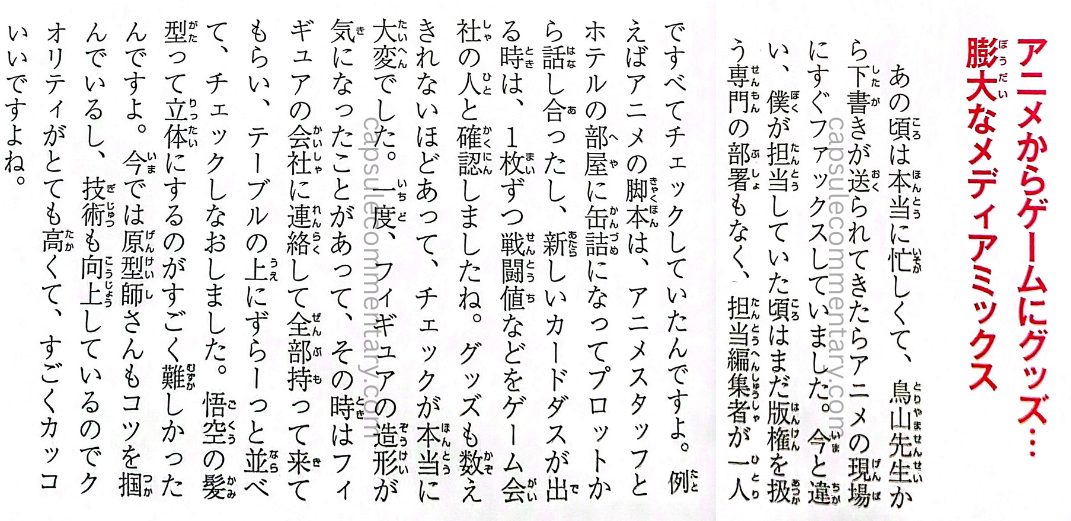 アニメからゲームにグッズ…
膨大なメディアミックス
あの頃は本当に忙しくて、鳥山先生か
ら下書きが送られてきたらアニメの現場
にすぐファックスしていました。今と違
い、僕が担当していた頃はまだ版権を扱
う専門の部署もなく、担当編集者が一人
ですべてチェックしていたんですよ。例
えばアニメの脚本は、アニメスタッフと
ホテルの部屋に缶詰になってプロットか
ら話し合ったし、新しいカードダスが出
る時は、1枚ずつ戦闘値などをゲーム会
社の人と確認しましたね。グッズも数え
きれないほどあって、チェックが本当に
大変でした。一度、フィギュアの造形が
気になったことがあって、その時はフィ
ギュアの会社に連絡して全部持って来て
もらい、テーブルの上にずらーっと並べ
て、チェックしなおしました。悟空の髪
型って立体にするのがすごく難しかった
んですよ。今では原型師さんもコツを掴
んでいるし、技術も向上しているのでク
オリティがとても高くて、すごくカッコ
いいですよね。
capsulecommentary.com
capsulecommentary.com